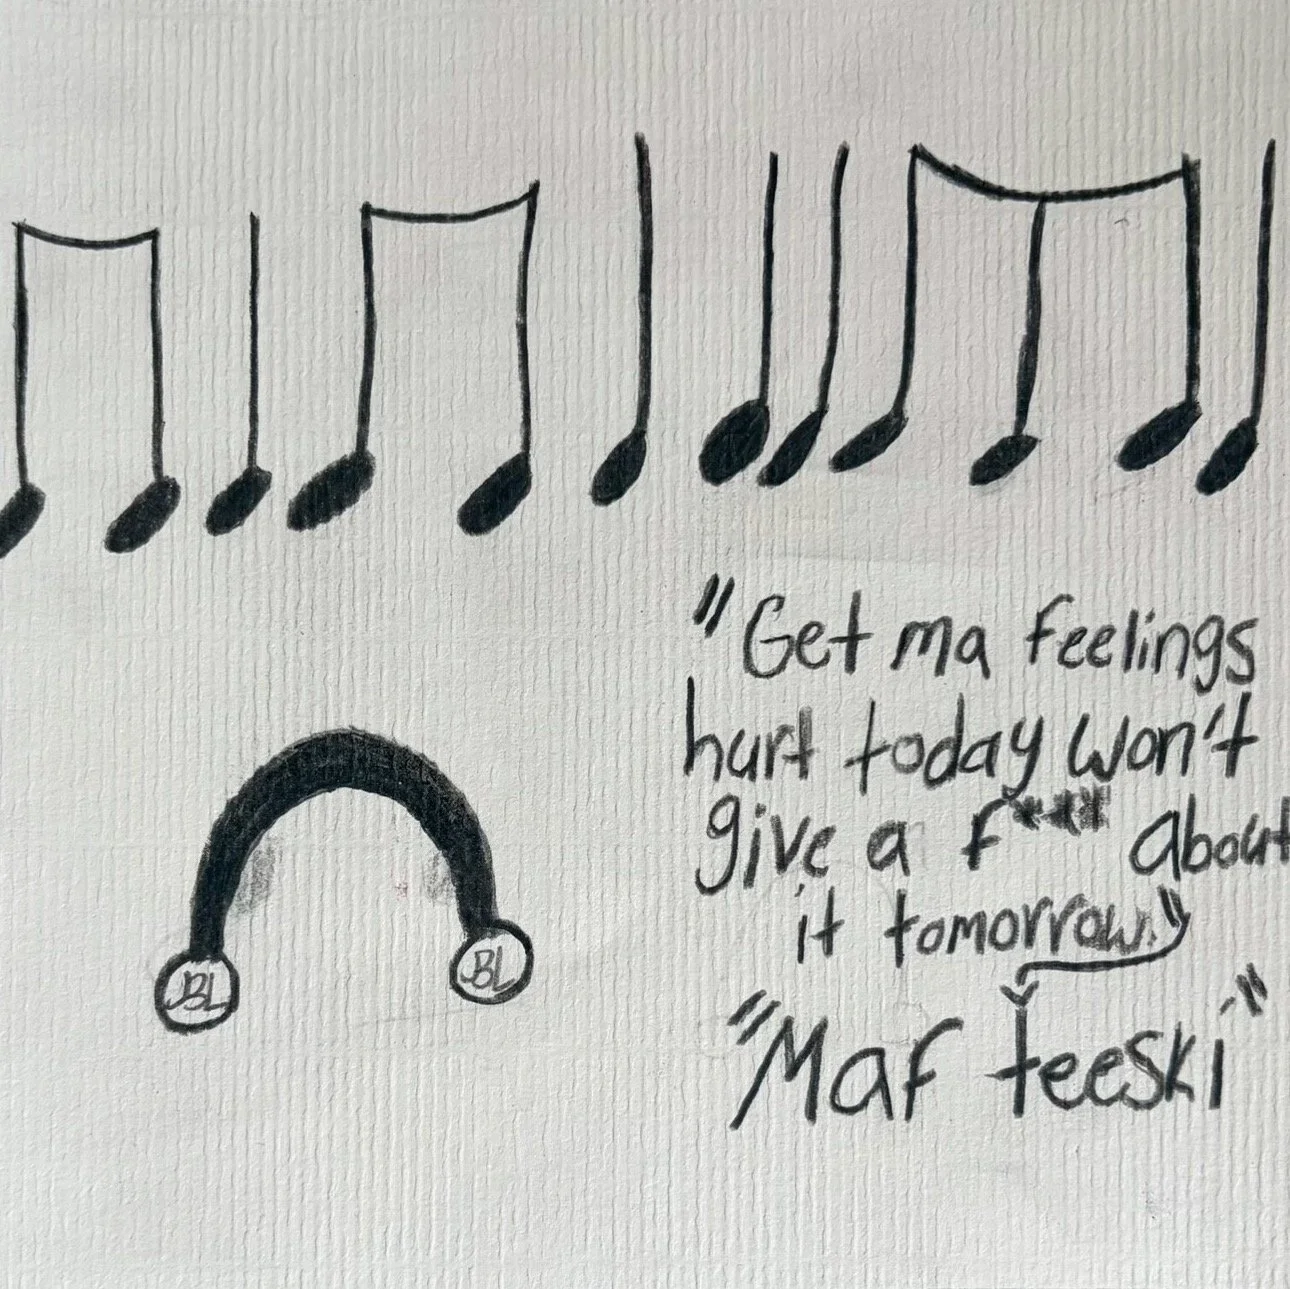 "Get ma feelings
hurt today won't
give a f*** about
it tomorrow."
"Maf teeski"
JBL
JBL